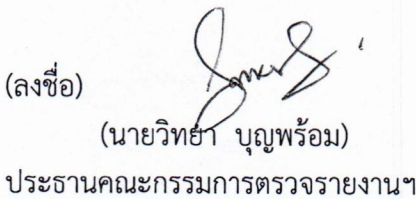 (ลงชื่อ)
(นายวิทยา บุญพร้อม)
ประธานคณะกรรมการตรวจรายงานฯ